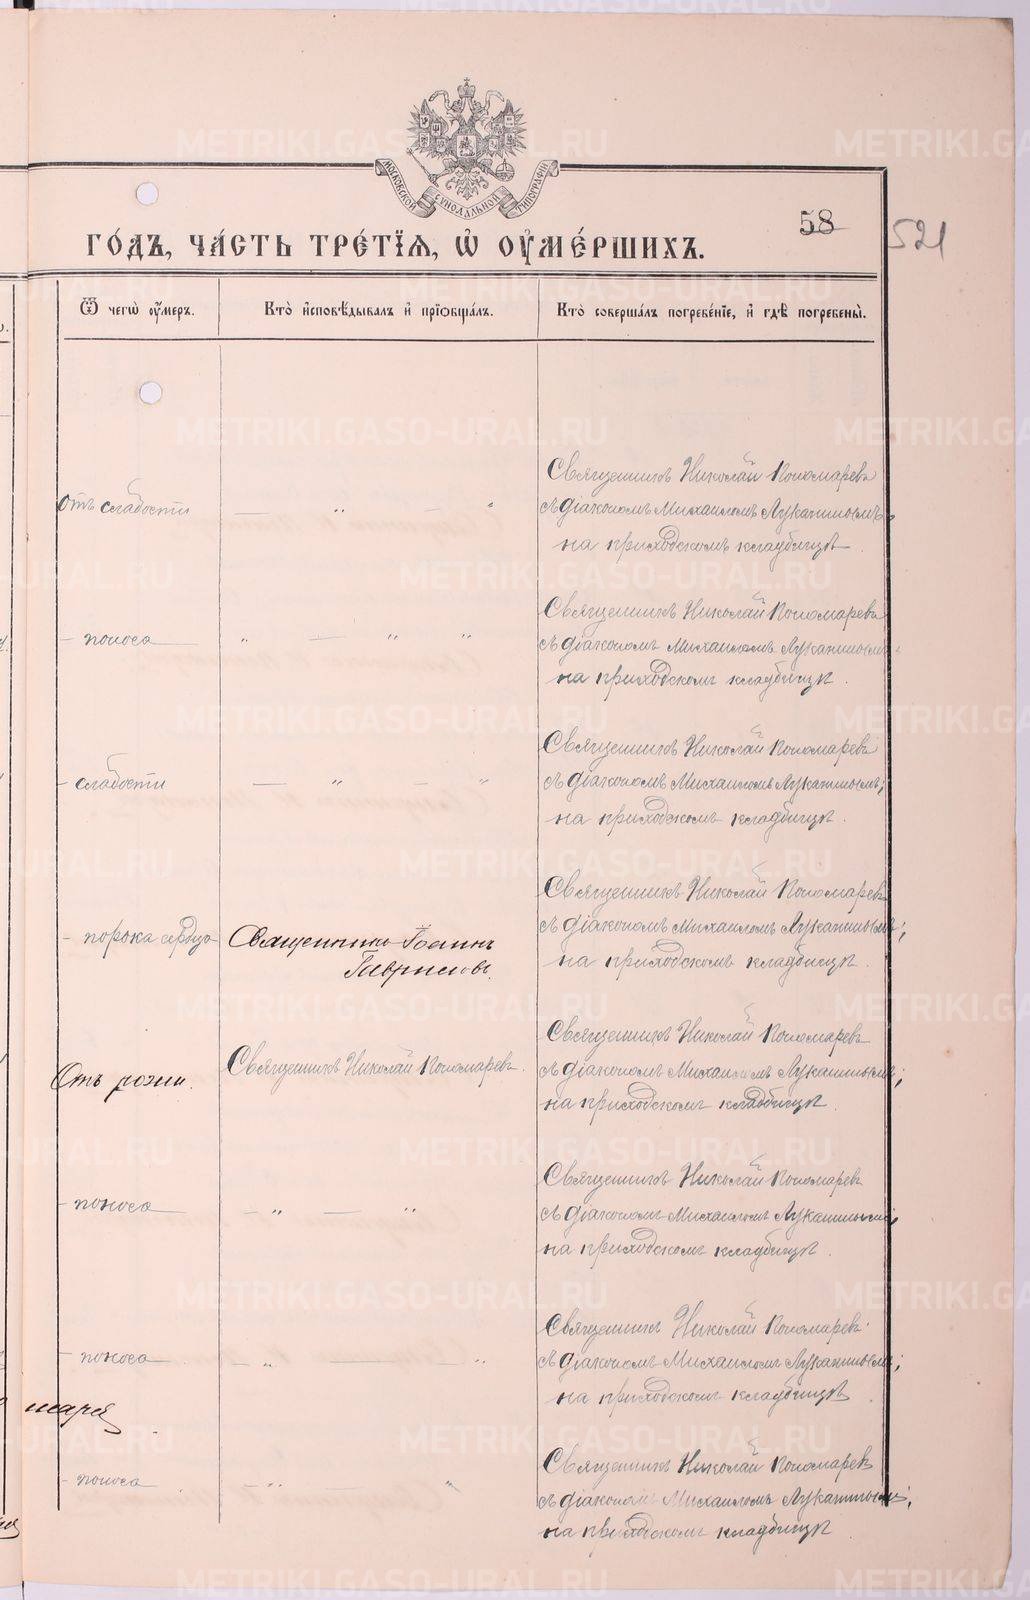 МОСКОВСКОЙ СѴНОДАЛЬНОЙ ТИПОГРАФІИ
58
521
ГО́ДЪ, ЧА́СТЬ ТРЕ́ТІѦ, Ѡ ОУ҆МЕ́РШИХЪ.
Ѿ чегѡ̀ оу҆́меръ.
Кто̀ и҆сповѣ́дывалъ и҆ пріѻбща́лъ.
Кто̀ соверша́лъ погребе́ніе, и҆ гдѣ̀ погребены̀.
отъ слабости — „ — „
Священникъ Николай Пономаревъ
съ діакономъ Михаиломъ Лукашинымъ,
на приходскомъ кладбищѣ.
– поноса „ — „ „
Священникъ Николай Пономаревъ
съ діакономъ Михаиломъ Лукашинымъ;
на приходскомъ кладбищѣ.
– слабости — „ — „
Священникъ Николай Пономаревъ
съ діакономъ Михаиломъ Лукашинымъ;
на приходскомъ кладбищѣ.
– порока сердца
Священникъ Іоаннъ
Гавриловъ.
Священникъ Николай Пономаревъ
съ діакономъ Михаиломъ Лукашинымъ;
на приходскомъ кладбищѣ.
Отъ рожи.
Священникъ Николай Пономаревъ.
Священникъ Николай Пономаревъ
съ діакономъ Михаиломъ Лукашинымъ;
на приходскомъ кладбищѣ.
– поноса – „ — „
Священникъ Николай Пономаревъ
съ діакономъ Михаиломъ Лукашинымъ,
на приходскомъ кладбищѣ.
– поноса – „ — „
Священникъ Николай Пономаревъ
съ діакономъ Михаиломъ Лукашинымъ;
на приходскомъ кладбищѣ.
– поноса – „ — „
Священникъ Николай Пономаревъ
съ діакономъ Михаиломъ Лукашинымъ;
на приходскомъ кладбищѣ.
METRIKI.GASO-URAL.RU